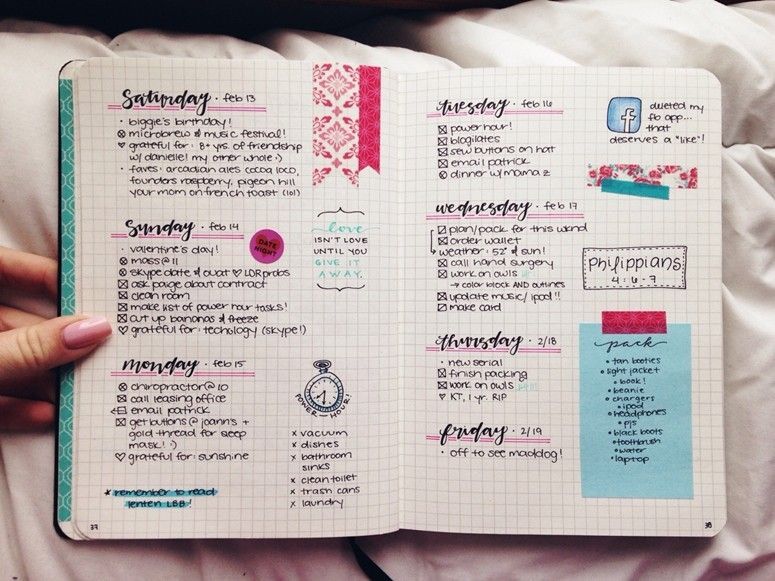 saturday · feb 13
· biggie's birthday!
microbrew & music festival!
grateful for: 8+ yrs of friendship
w/ danielle! my other whole :)
· faves: arcadian ales cocoa loco,
founders raspberry, pigeon hill
your mom on french toast (lol)
sunday · feb 14
· valentine's day!
mass @ 11
skype date & ouat ♡ LDR probs
ask paige about contract
clean room
make list of power hour tasks!
cut up bananas & freeze
grateful for: techology (skype!)
DATE
NIGHT
love
ISN'T LOVE
UNTIL YOU
GIVE IT
AWAY.
monday · feb 15
chiropractor @ 10
call leasing office
email patrick
get buttons @ joann's +
gold thread for sleep
mask! :)
grateful for: sunshine
* remember to read
lenten LBB!
POWER-HOUR!
x vacuum
x dishes
x bathroom
sinks
x clean toilet
x trash cans
x laundry
37
tuesday · feb 16
power hour!
blogilates
sew buttons on hat
email patrick
dinner w/ mama z
f
deleted my
fb app...
that
deserves a "like"!
wednesday · feb 17
plan/pack for this wknd
order wallet
weather: 52° & sun!
call hand surgery
work on owls
→ color block AND outlines
update music/ipod!!
make card
philippians
4:6-7
thursday · 2/18
· new serial
finish packing
work on owls
♡ KT, 1 yr. RIP
friday · 2/19
· off to see maddog!
pack
• tan booties
• light jacket
• book!
• beanie
• chargers
• ipod
• headphones
• pjs
• black boots
• toothbrush
• water
• laptop
38